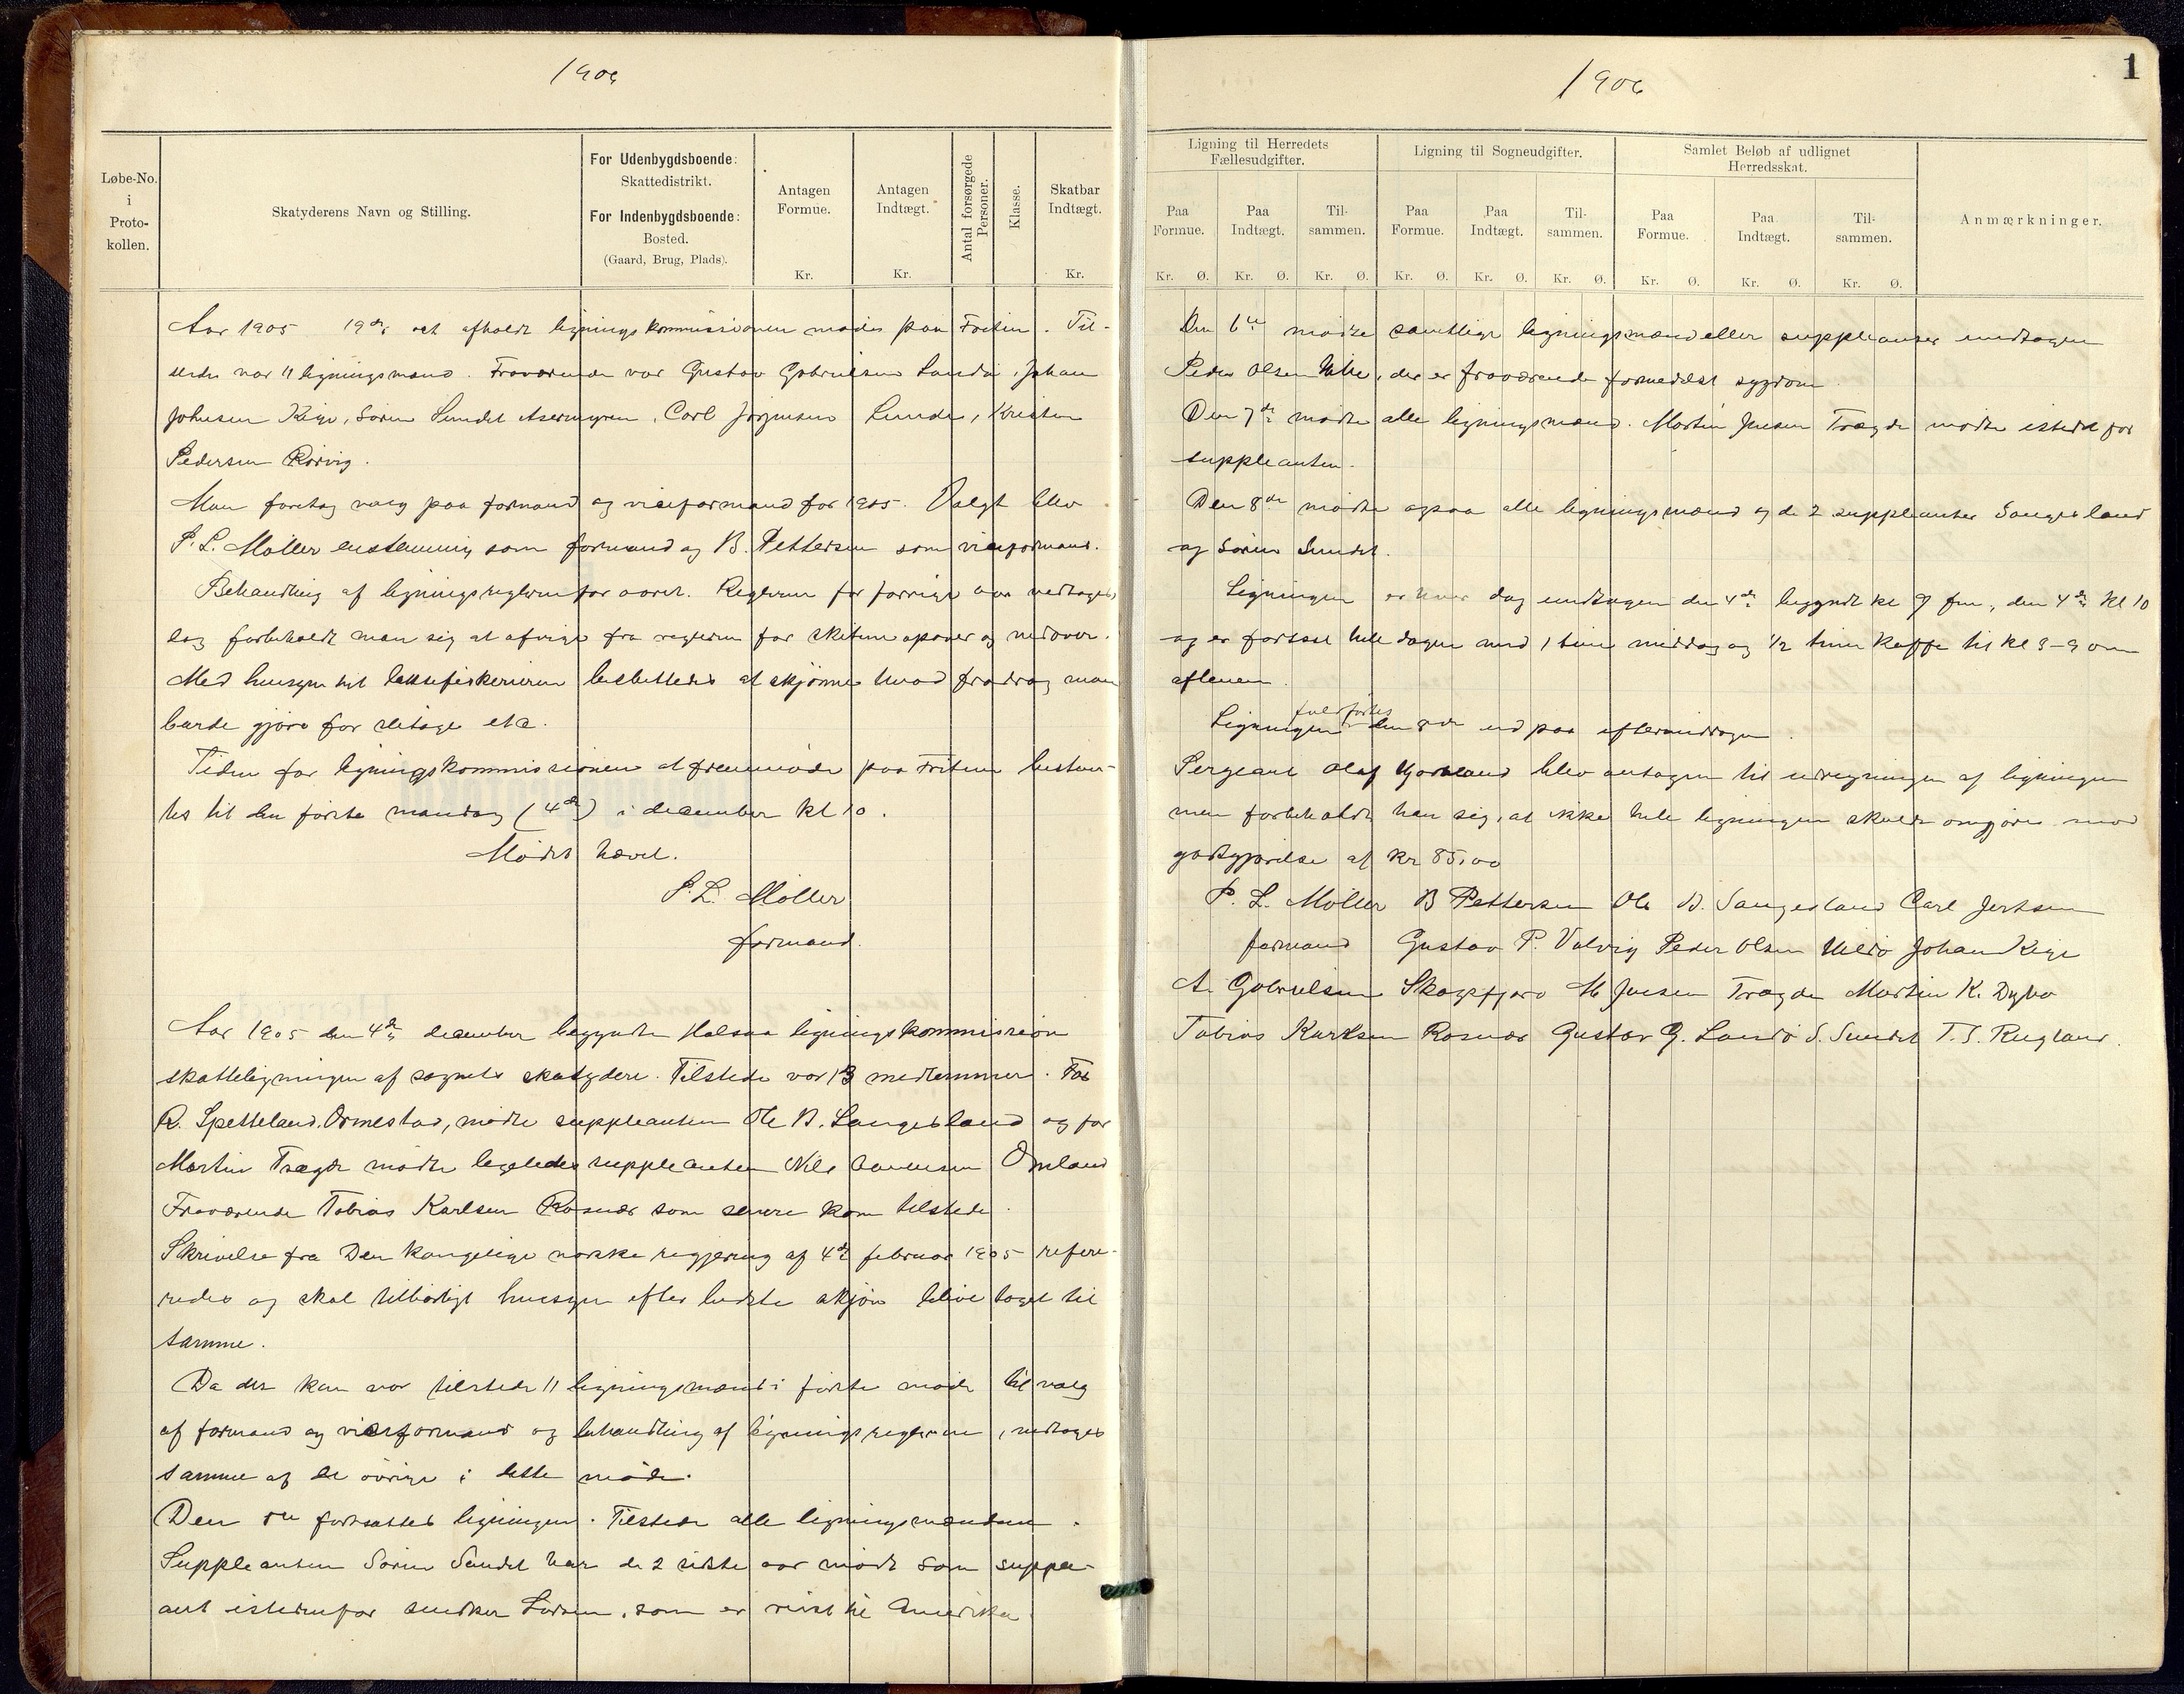 1906
Løbe-No. i Proto-kollen.
Skatyderens Navn og Stilling.
For Udenbygdsboende: Skattedistrikt.
For Indenbygdsboende: Bosted. (Gaard, Brug, Plads).
Antagen Formue. Kr.
Antagen Indtægt. Kr.
Antal forsørgede Personer.
Klasse.
Skatbar Indtægt. Kr.
Aar 1905 19de oct afholdt ligningskommissionen møde paa . Til-
stede var 11 ligningsmænd. Fraværende var Gustav Gabrielsen Landø, Johan
Johnsen Kige, Søren Sundet , Carl Jørgensen Lunde, Kristen
Pedersen Rosvig.
Man foretog valg paa formand og viceformand for 1905. Valgt blev
P. L. Møller enstemmig som formand og B. Pettersen som viceformand.
Behandling af ligningsreglerne for aaret. Reglerne for forrige aar vedtoges,
dog forbeholdt man sig at afvige fra reglerne for skibene opover og nedover.
Med hensyn til laksefiskerierne besluttedes at skjønne hvad fradrag man
burde gjøre for slitage etc.
Tiden for ligningskommissionen at fremmøde paa bestem-
tes til den første mandag (4de) i december kl 10.
Mødet hævet.
P. L. Møller
formand.
Aar 1905 den 4de december begyndte Halsaa ligningskommission
skatteligningen af sognets skatydere. Tilstede var 13 medlemmer. For
R. Spetteland, Ormestad, mødte suppleanten Ole B. Sangesland og for
Martin Trægde mødte ligeledes suppleanten Nils Omland
Fraværende Tobias Karlsen Rosnæs som senere kom tilstede.
Skrivelse fra Den kongelige norske regjering af 4de februar 1905 refere-
redes og skal tilbørligt hensyn efter bedste skjøn blive taget til
samme.
Da der kun var tilstede 11 ligningsmænd i første møde til valg
af formand og viceformand og behandling af ligningsreglerne, vedtoges
samme af de øvrige i dette møde.
Den 5te fortsattes ligningen. Tilstede alle ligningsmændene.
Suppleanten Søren Sundet har de 2 sidste aar mødt som supple-
ant istedenfor snedker Larsen, som er reist til Amerika
1906
1
Ligning til Herredets Fællesudgifter.
Ligning til Sogneudgifter.
Samlet Beløb af udlignet Herredsskat.
Anmærkninger.
Paa Formue. Paa Indtægt. Til-sammen. Paa Formue. Paa Indtægt. Til-sammen. Paa Formue. Paa Indtægt. Til-sammen.
Kr. Ø. Kr. Ø. Kr. Ø. Kr. Ø. Kr. Ø. Kr. Ø. Kr. Ø. Kr. Ø. Kr. Ø.
Den 6te mødte samtlige ligningsmænd eller suppleanter undtagen
Peder Olsen , der er fraværende formedelst sygdom
Den 7de mødte alle ligningsmænd. Martin Jensen Trægde mødte istedet for
suppleanten.
Den 8de mødte ogsaa alle ligningsmænd og de 2 suppleanter Sangesland
og Søren Sundet.
Ligningen er hver dag undtagen den 4de begyndt kl 9 fm, den 4de kl 10
og er fortsat hele dagen med 1 time middag og 1/2 time kaffe til kl 8-9 om
aftenen.
Ligningen fuldførtes den 8de ud paa eftermiddagen.
Sergeant Olaf blev antagen til udregningen af ligningen
men forbeholdt han sig, at ikke hele ligningen skulde omgjøres mod
godtgjørelse af kr 85,00
P. L. Møller B Pettersen Ole B. Sangesland Carl Jertsen
formand Gustav P. Valvig Peder Olsen Johan Kige
A. Gabrielsen Skogsfjord M Jensen Trægde Martin K. Dybo
Tobias Karlsen Rosnæs Gustav G. Landø S. Sundet T. S. Rugland.